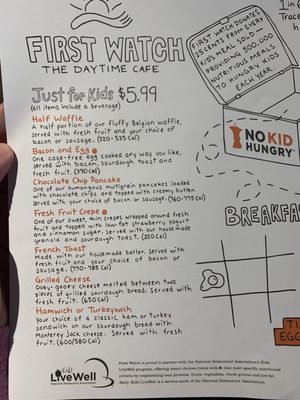 FIRST WATCH
THE DAYTIME CAFE
Just for Kids $5.99
(all items include a beverage)
Half Waffle
A half portion of our fluffy Belgian waffle,
served with fresh fruit and your choice of
bacon or sausage. (520-535 Cal)
Bacon and Egg
One cage-free egg cooked any way you like,
served with bacon, sourdough toast and
fresh fruit. (390 Cal)
Chocolate Chip Pancake
One of our humongous multigrain pancakes loaded
with chocolate chips and topped with creamy butter,
served with your choice of bacon or sausage. (760-775 Cal)
Fresh Fruit Crepe
One of our sweet, thin crepes wrapped around fresh
fruit and topped with low-fat strawberry yogurt
and cinnamon sugar. Served with our house made
granola and sourdough toast. (320 Cal)
French Toast
Made with our housemade batter. Served with
fresh fruit and your choice of bacon or
sausage. (770-785 Cal)
Grilled Cheese
Ooey-gooey cheese melted between two
pieces of grilled sourdough bread. Served with
fresh fruit. (650 Cal)
Hamwich or Turkeywich
Your choice of a classic ham or turkey
sandwich on our sourdough bread with
Monterey Jack cheese. Served with fresh
fruit. (600/580 Cal)
Kids
LiveWell
National Restaurant Association
First Watch is proud to partner with the National Restaurant Association's Kids
LiveWell program, offering menu choices (items with) that meet specific nutritional
criteria by emphasizing lean proteins, fruits, vegetables, whole grains and low-fat
dairy. Kids LiveWell is a service mark of the National Restaurant Association.
FIRST WATCH DONATES
25 CENTS FROM EVERY
KIDS MEAL SOLD
PROVIDING 500,000
NUTRITIOUS MEALS
TO HUNGRY KIDS
EACH YEAR.
NO KID
HUNGRY
1 in
Trace
h
BREAKFA
TI
EGG